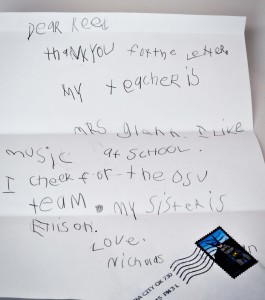 DEAR Reed
thANK YOU for the Letter.
MY teacher is
MRS Glenn. I Like
music at school.
I cheek for the OSU
team. my sister is
Ellison.
Love.
Nicholas
CITY OK 730